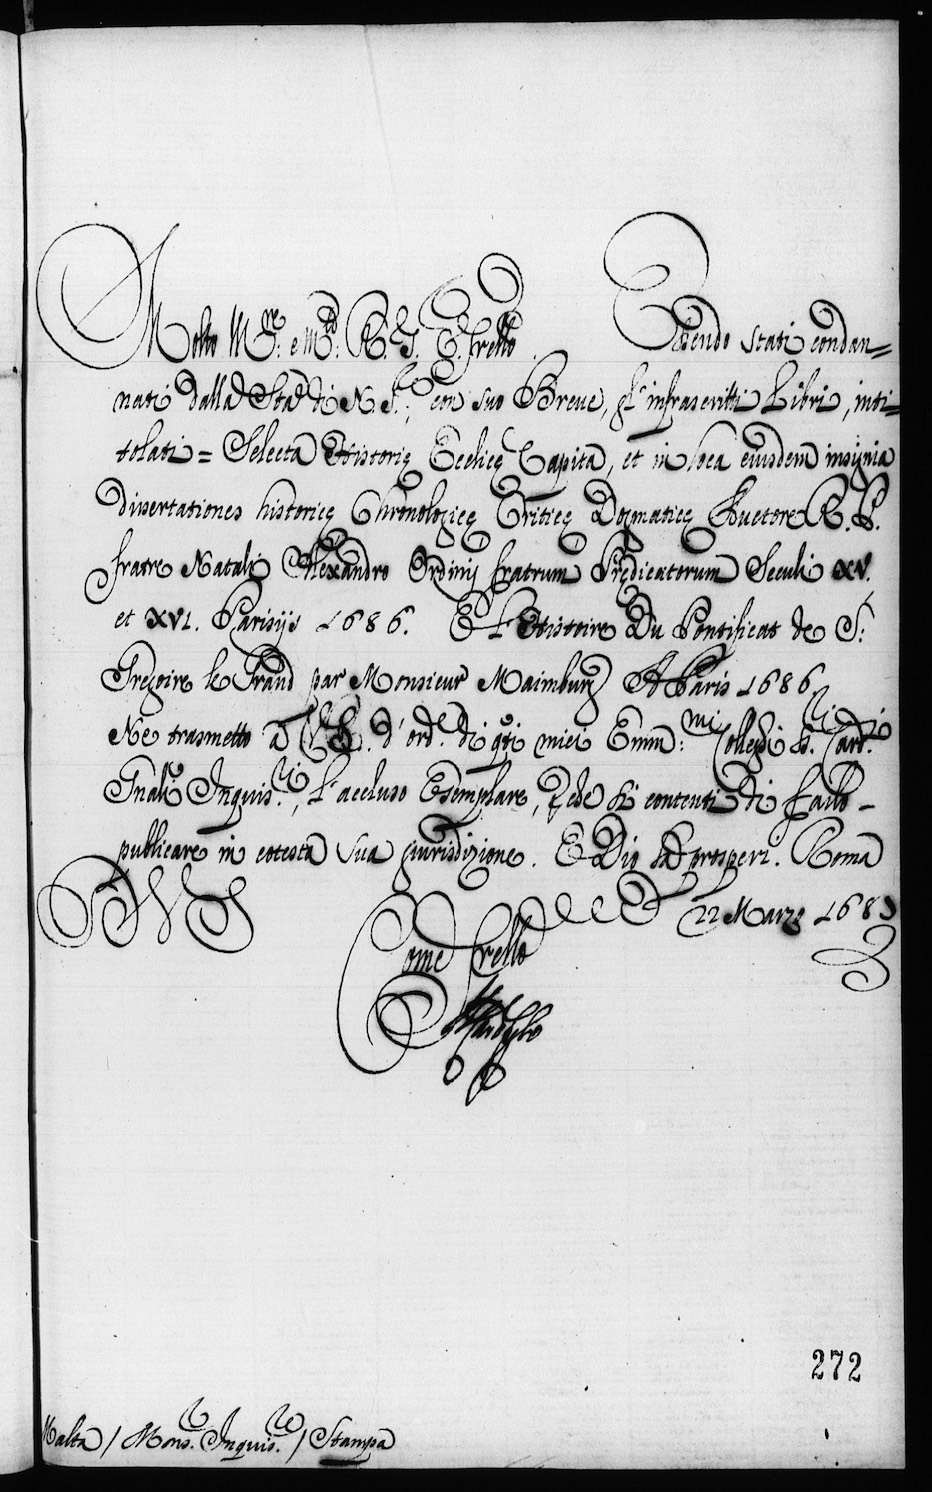 Molto Ill.re e m.to R.do S.r come frello Essendo stati condan=
nati dalla San.tà di N. S.re con suo Breve, gl'infrascritti Libri, inti=
tolati = Selecta Historię Ecclieę Capita, et in loca eiusdem insignia
dissertationes historicę Chronologicę Criticę Dogmaticę Auctore R. P.
fratre Natali Alexandro Ordinis fratrum Prędicatorum Seculi XV.
et XVI. Parisijs 1686. E L'Histoire Du Pontificat de S:
Gregoire le Grand par Monsieur Maimburg A Paris 1686
Ne trasmetto à V.S. d'ord.e di q.ti miei Emin:mi Colleghi S.ri Card.li
Gnali Inquis.ri, l'accluso Esemplare, che si contenti di farlo
publicare in cotesta sua giurisdizione. E Dio la prosperi. Roma
22 Marzo 168
V S
Come frello
272
Malta / Mons.r Inquis.re / Stampa